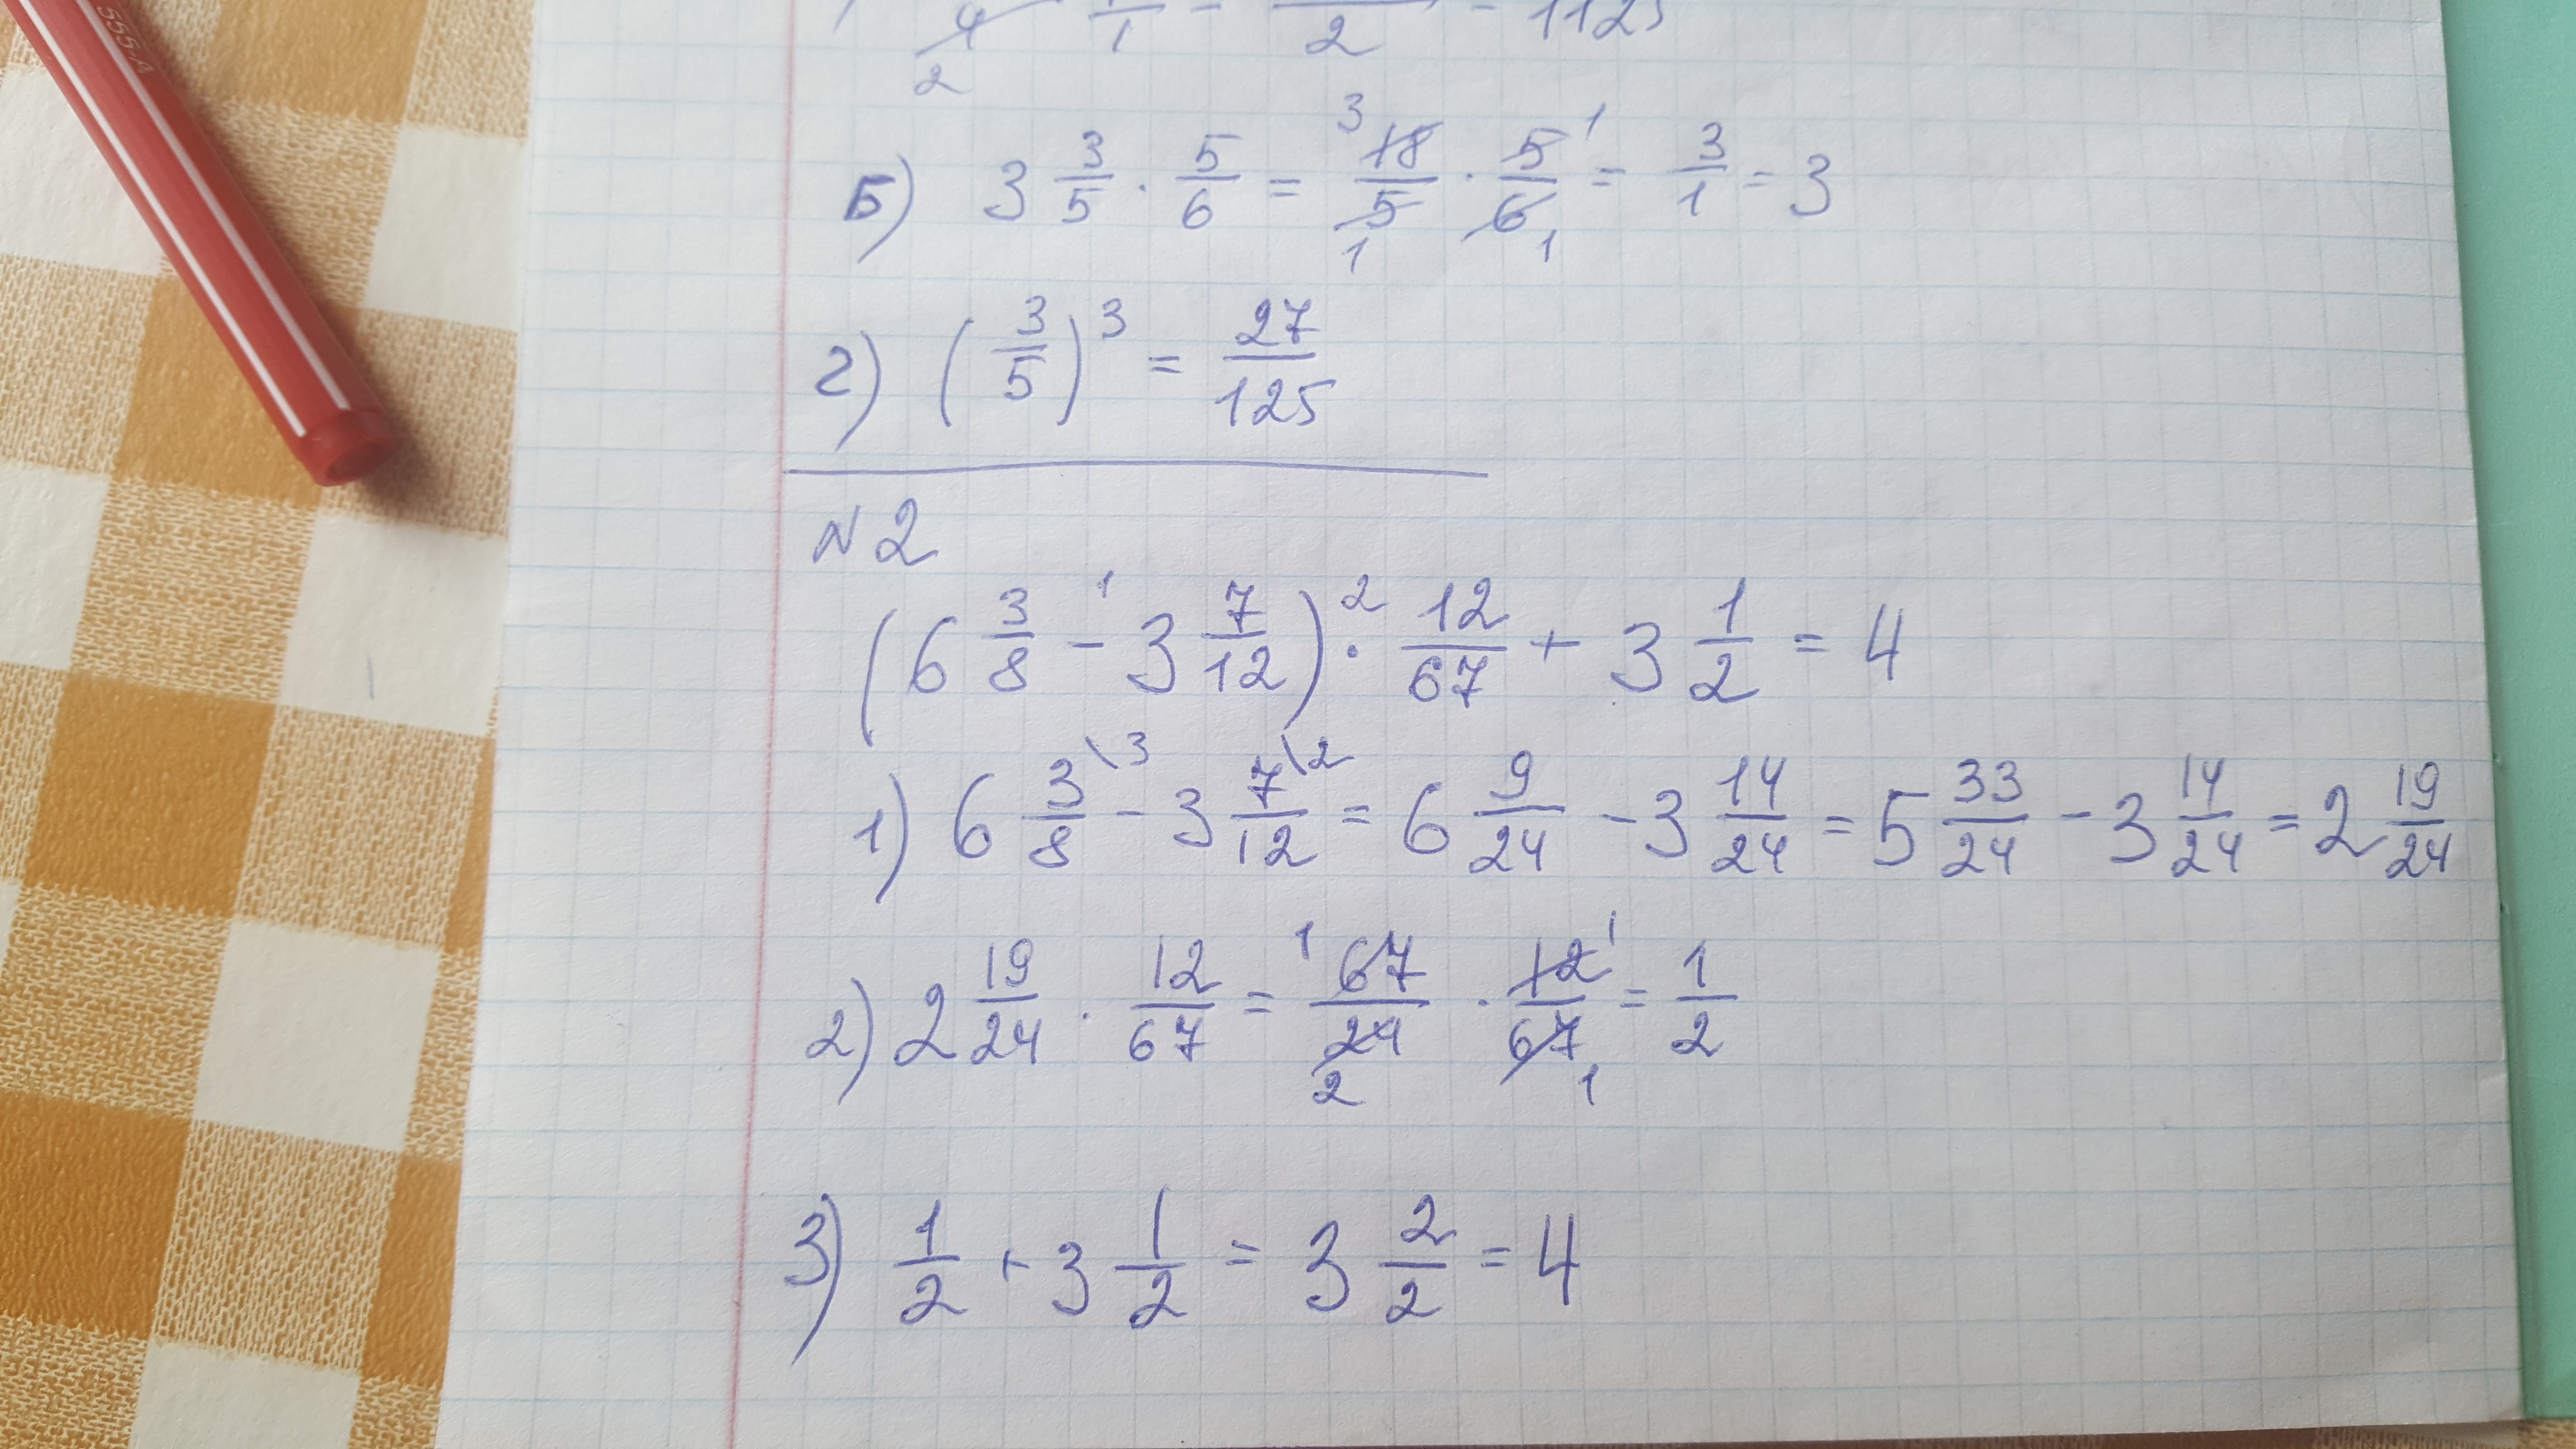 б) 3 3/5 · 5/6 = 18/5 · 5/6 = 3/1 = 3
г) (3/5)³ = 27/125
N 2
(6 3/8 - 3 7/12) · 12/67 + 3 1/2 = 4
1) 6 3/8 \3 - 3 7/12 \2 = 6 9/24 - 3 14/24 = 5 33/24 - 3 14/24 = 2 19/24
2) 2 19/24 · 12/67 = 67/24 · 12/67 = 1/2
3) 1/2 + 3 1/2 = 3 2/2 = 4